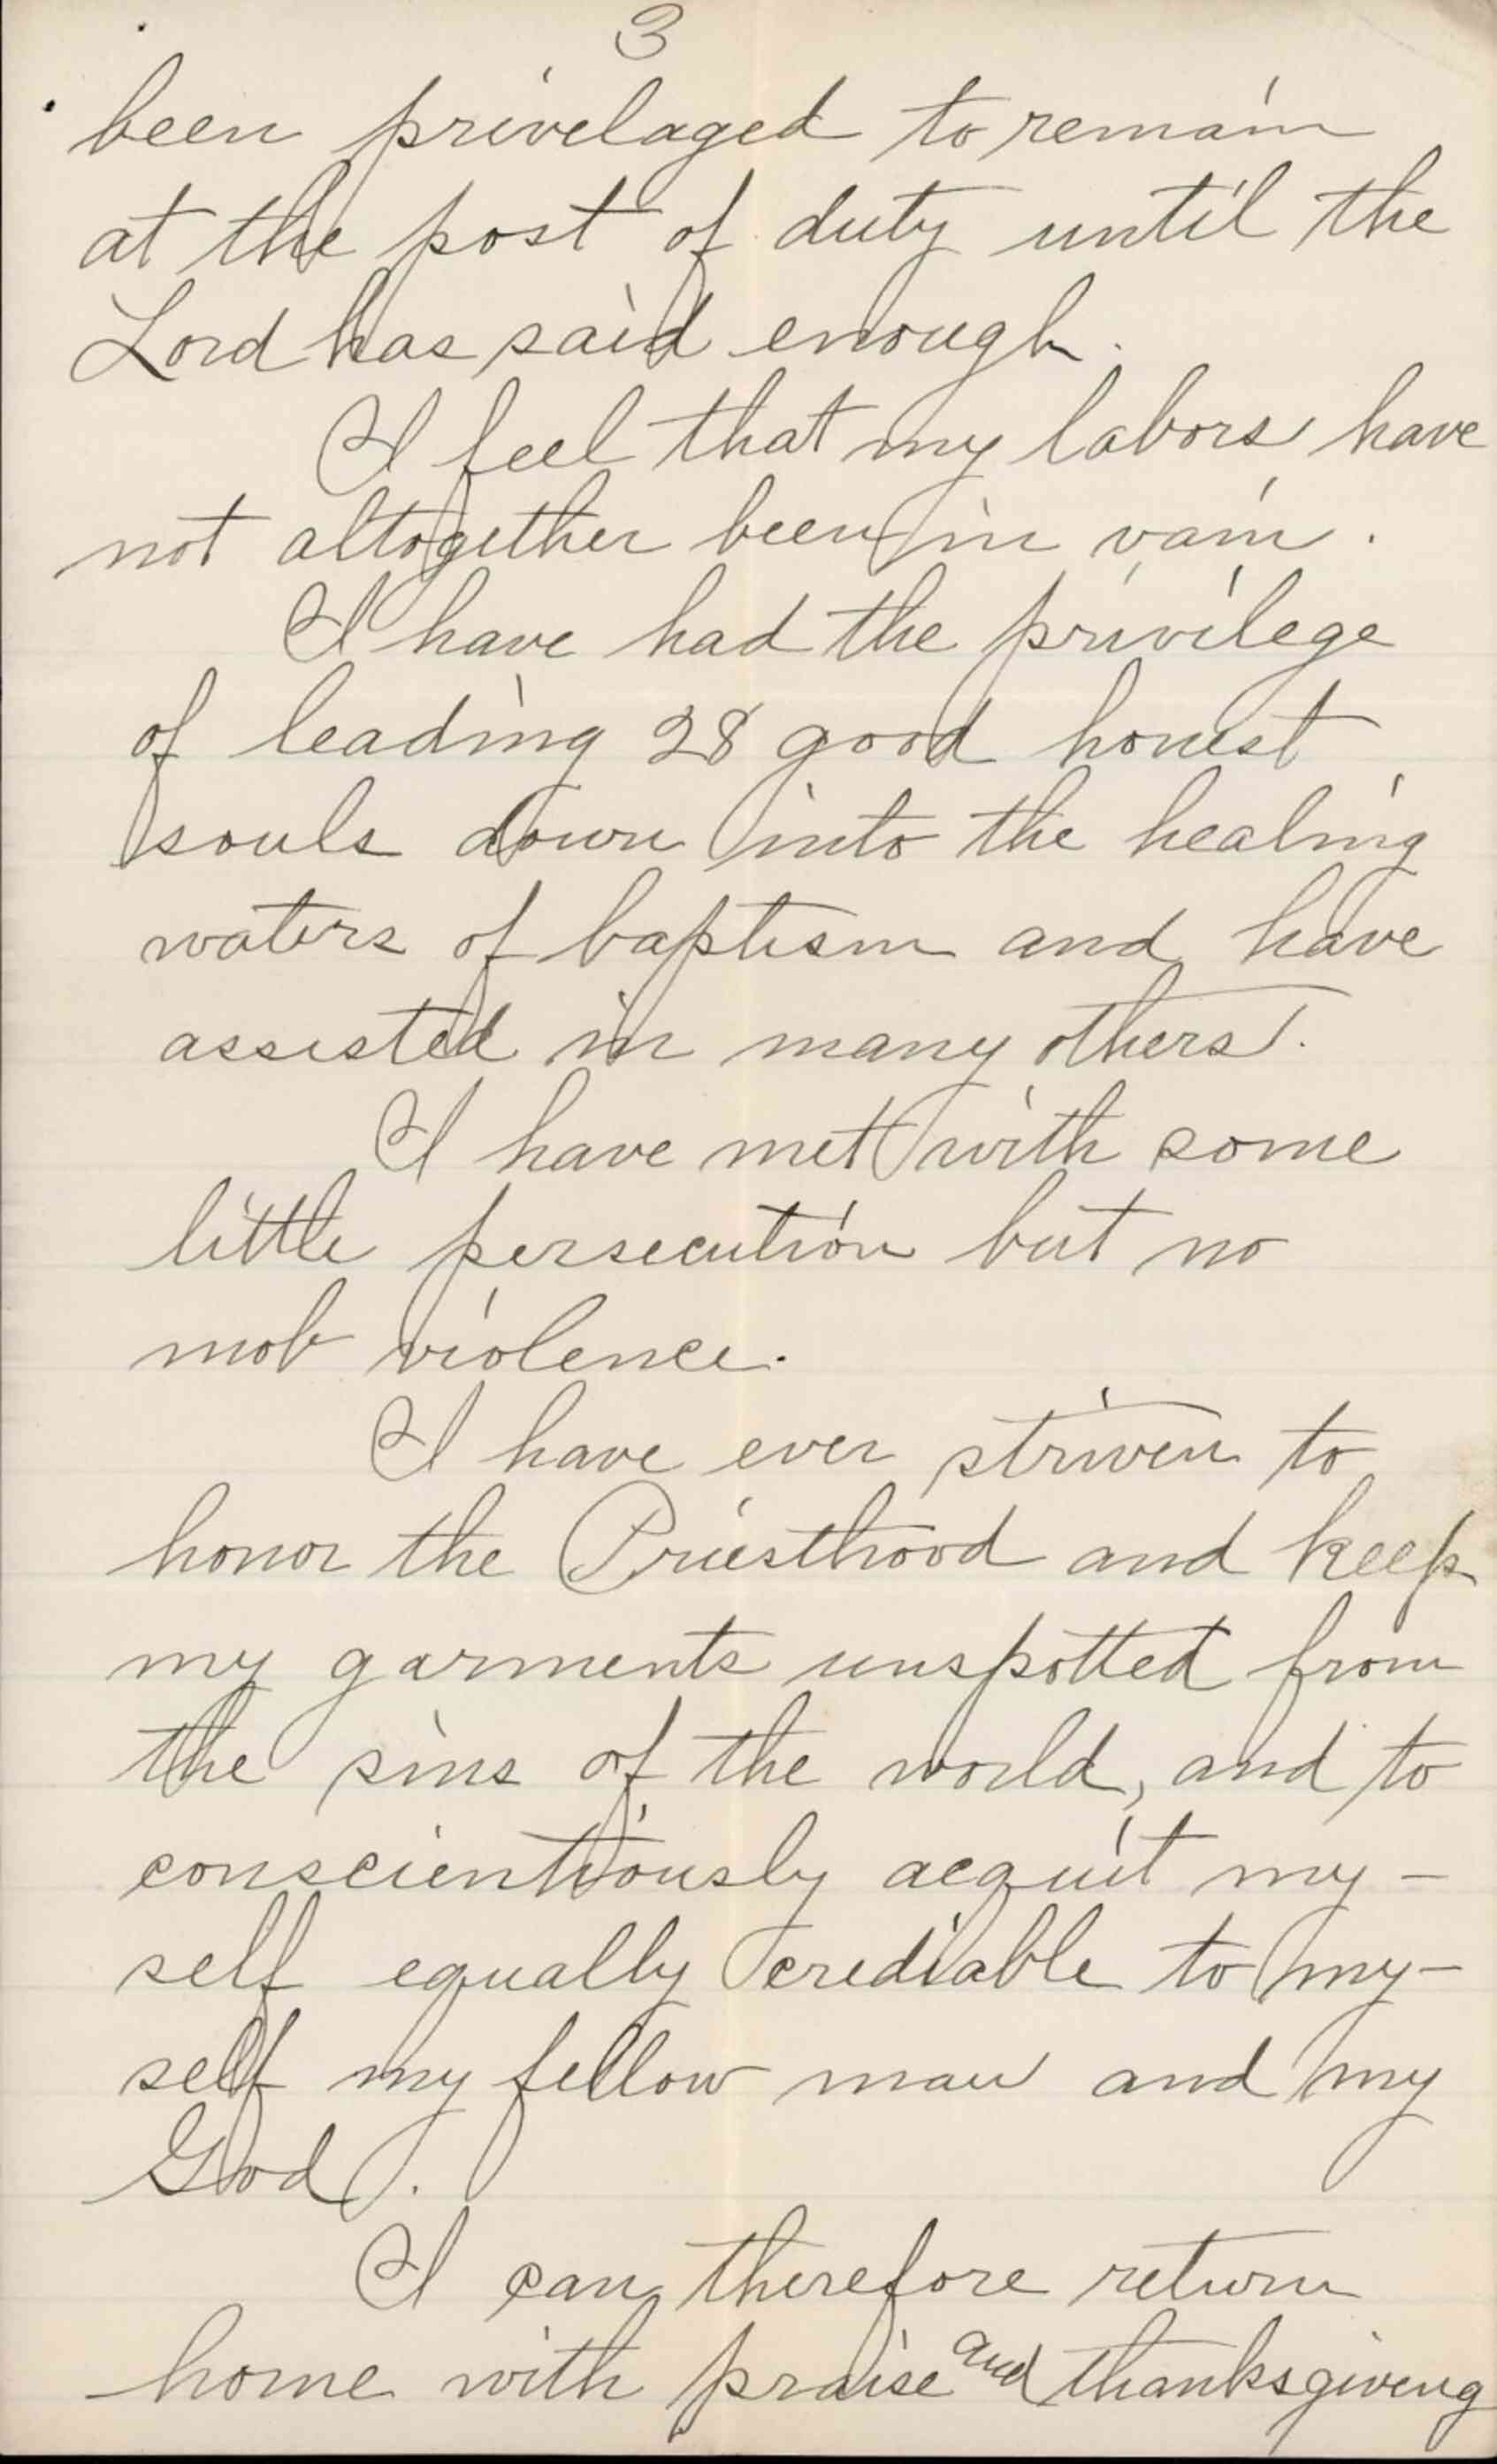 3
been privelaged to remain
at the post of duty until the
Lord has said enough.
I feel that my labors have
not altogether been in vain.
I have had the privilege
of leading 28 good honest
souls down into the healing
waters of baptism and have
assisted in many others.
I have met with some
little persecution but no
mob violence.
I have ever striven to
honor the Priesthood and keep
my garments unspotted from
the sins of the world, and to
conscientiously acquit my-
self equally crediable to my-
self my fellow man and my
God.
I can therefore return
home with praise and thanksgiving